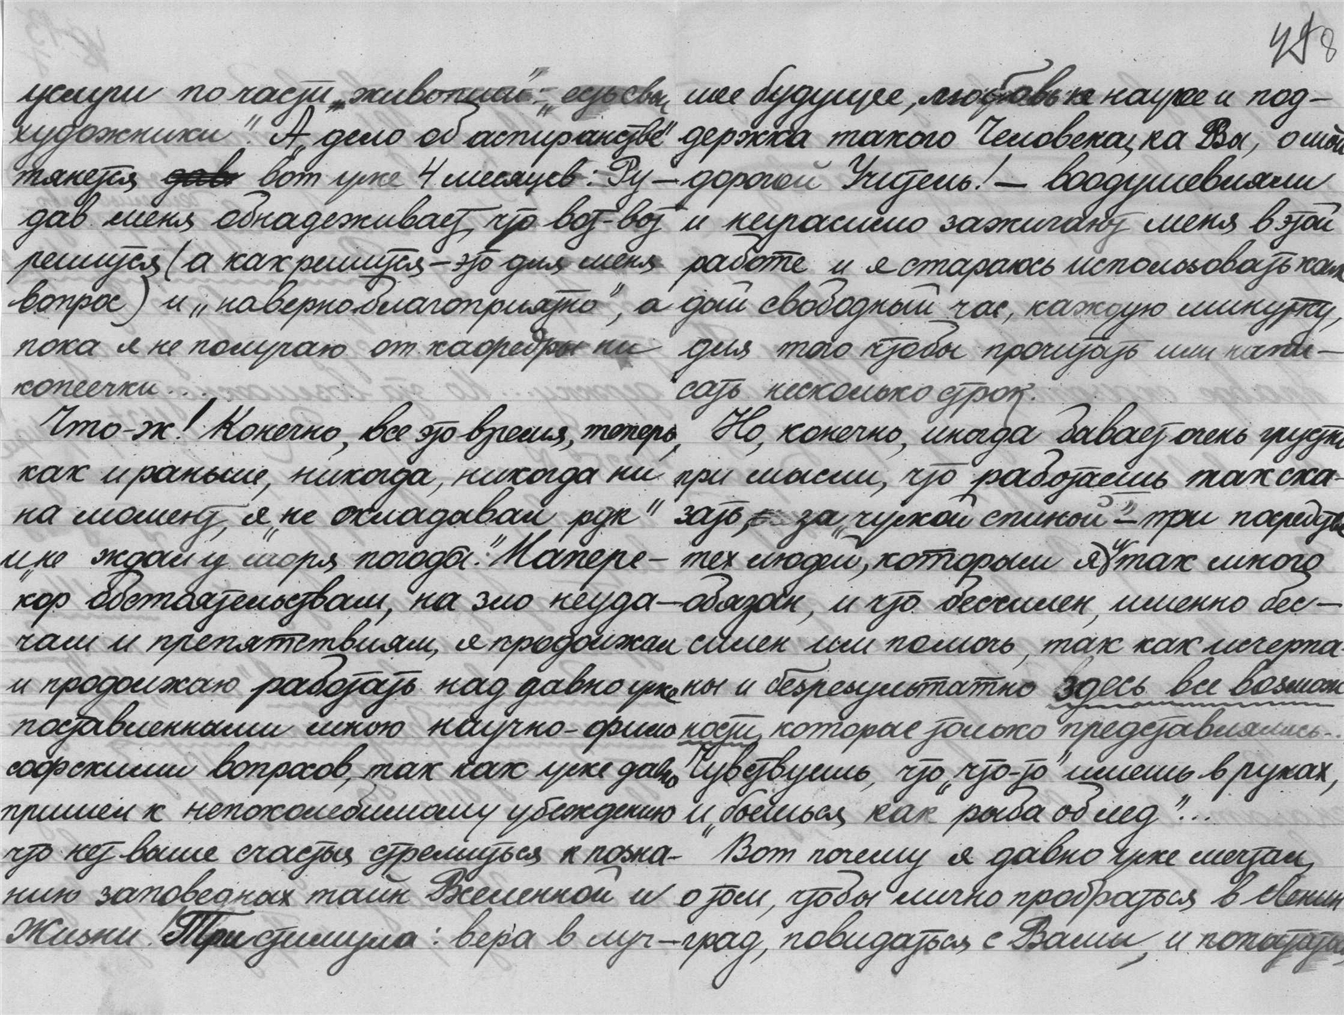 458
услуги по части „живописи“: „есть свои
художники“. А „дело об аспирантстве“
тянется вот уже 4 месяцев: Ру-
дав меня обнадеживает, что вот-вот
решится (а как решится – это для меня
вопрос) и „наверно благоприятно“, а
пока я не получаю от кафедры ни
копеечки...
Что-ж! Конечно, все это время, теперь,
как и раньше, никогда, никогда ни
на момент, я „не складавал рук“
и не ждал „у моря погоды“. Напере-
кор обстоятельствам, на зло неуда-
чам и препятствиям, я продолжал
и продолжаю работать над давно уже
поставленными мною научно-фило
софскими вопросов, так как уже давно
пришел к непоколебимому убеждению
что нет выше счастья стремиться к позна-
нию заповедных тайн Вселенной и
Жизни! Три стимула: вера в луч-
шее будущее, любовь к науке и под-
держка такого Человека, ка Вы, о мой
дорогой Учитель! – воодушевляли
и неугасимо зажигают меня в этой
работе и я стараюсь использовать каж
дый свободный час, каждую минутку,
для того чтобы прочитать или напи-
сать несколько строк.
Но, конечно, иногда бывает очень грустно
при мысли, что работаешь так ска-
зать, за „чужой спиной“ – при посредстве
тех людей, которым я и так много
обязан, и что бессилен, именно бес-
силен им помочь, так как исчерпа-
ны и безрезультатно здесь все возмож
ности, которые только представлялись...
Чувствуешь, что „что-то“ имеешь в руках,
и „бьешься как рыба об лед“...
Вот почему я давно уже мечтал
о том, чтобы лично пробраться в Ленин
град, повидаться с Вами, и попытаться